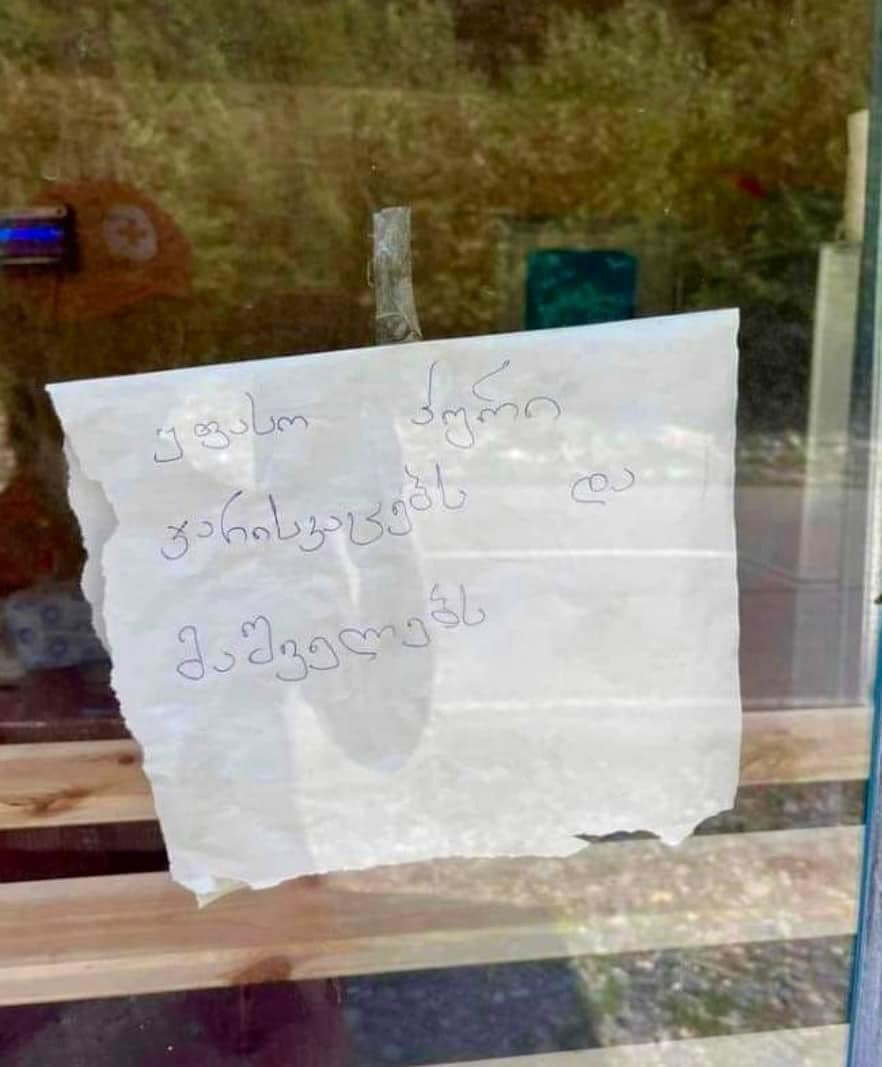 უფასო პური
ჯარისკაცებს და
მაშველებს